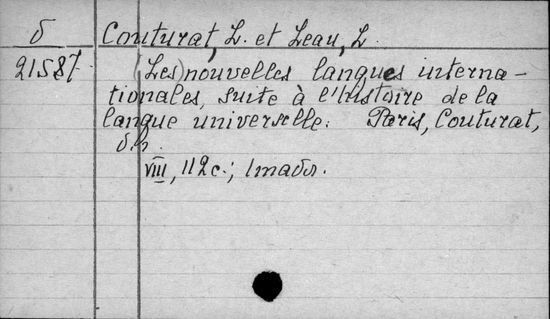 б Couturat, L. et Leau, L.
21587. (Les) nouvelles langues interna-
tionales, suite à l'histoire de la
langue universelle. Paris, Couturat,
б.г.
VIII, 112 c.;